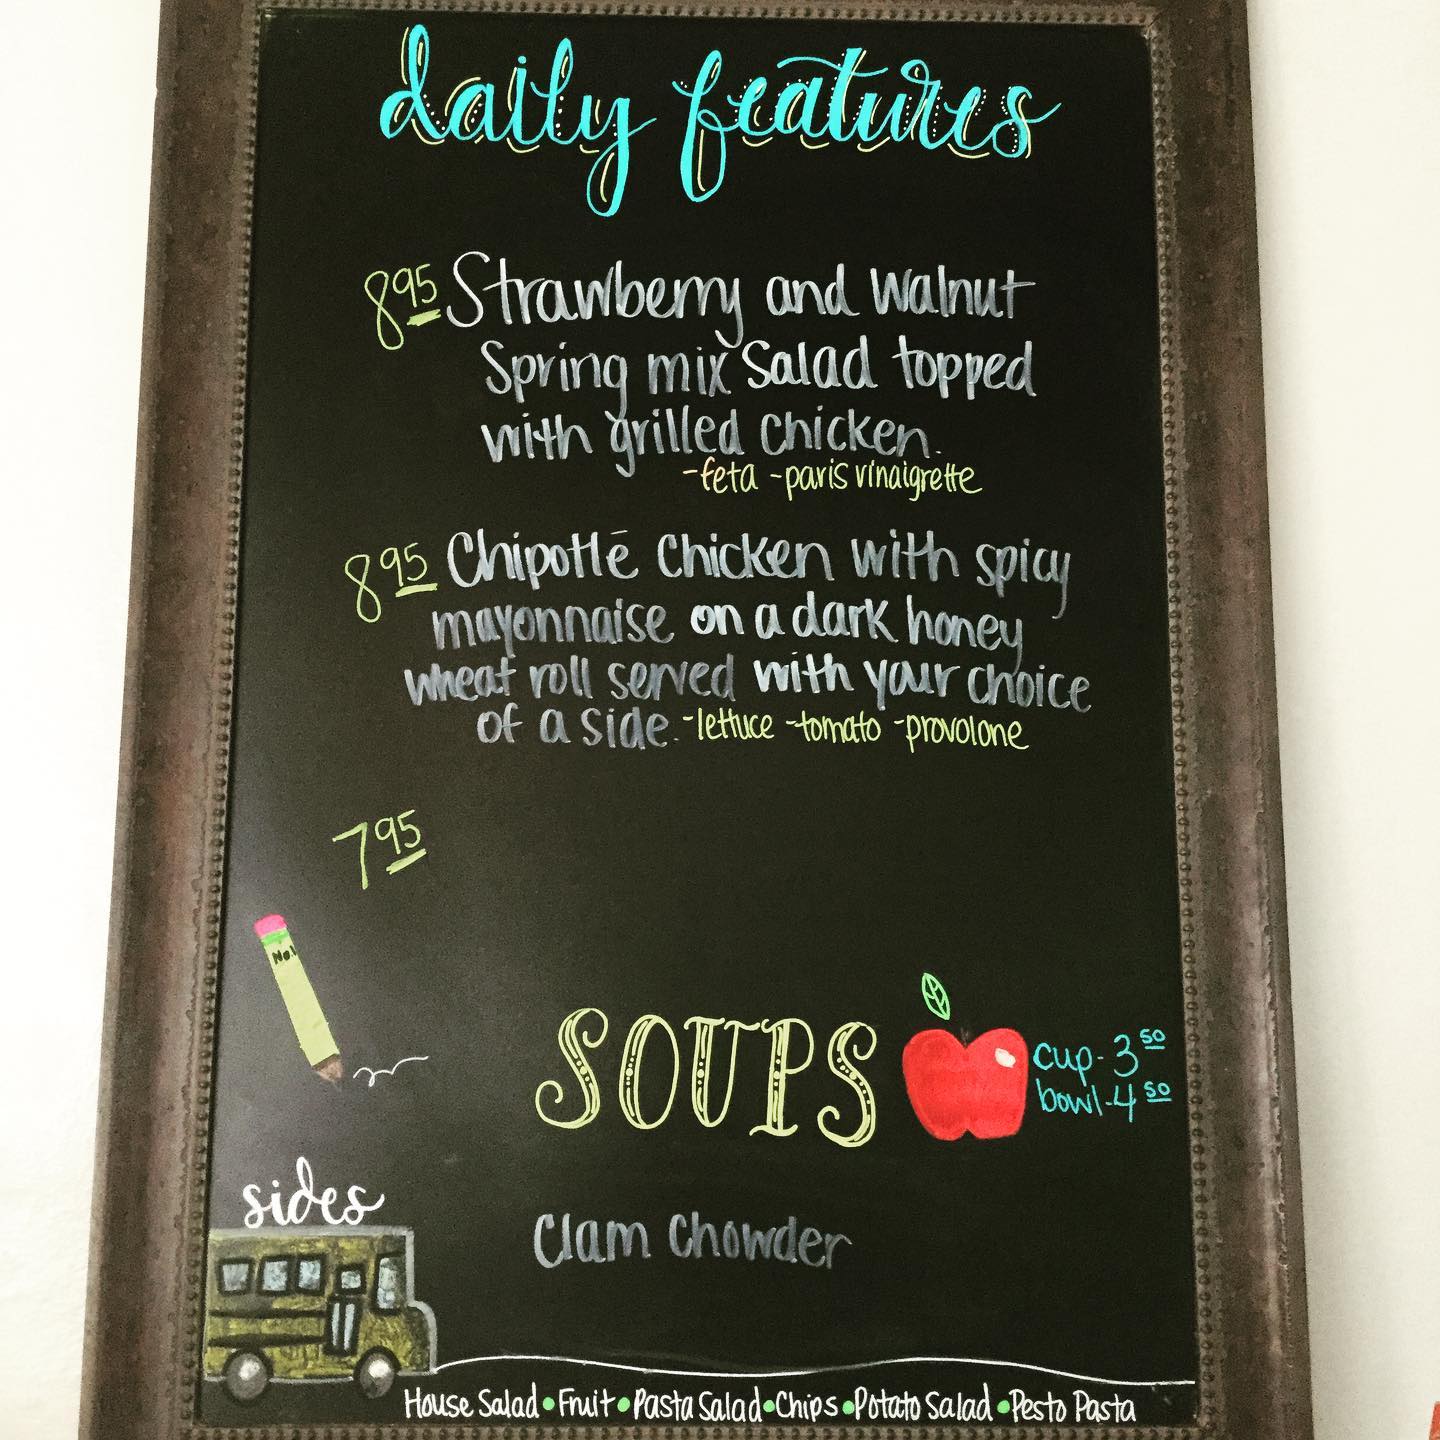 daily features
8 95 Strawberry and walnut
Spring mix Salad topped
with grilled chicken.
-feta -paris vinaigrette
8 95 Chipotlē Chicken with spicy
mayonnaise on a dark honey
wheat roll served with your choice
of a side. -lettuce -tomato -provolone
7 95
No.1
SOUPS
cup- 3 50
bowl- 4 50
sides
Clam Chowder
House Salad • Fruit • Pasta Salad • Chips • Potato Salad • Pesto Pasta